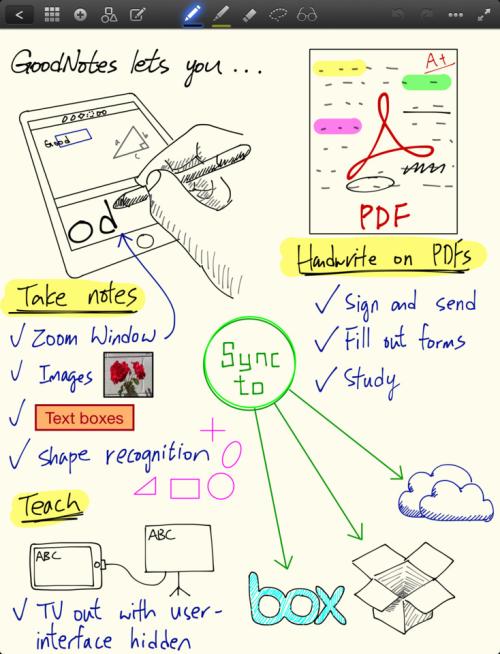 GoodNotes lets you ...
A+
Good
a
b
c
od
PDF
Handwrite on PDFs
Take notes
✓ Zoom Window
✓ Images
✓ Text boxes
✓ Shape recognition
✓ Sign and send
✓ Fill out forms
✓ Study
Sync
to
Teach
ABC
ABC
✓ TV out with user-
interface hidden
box